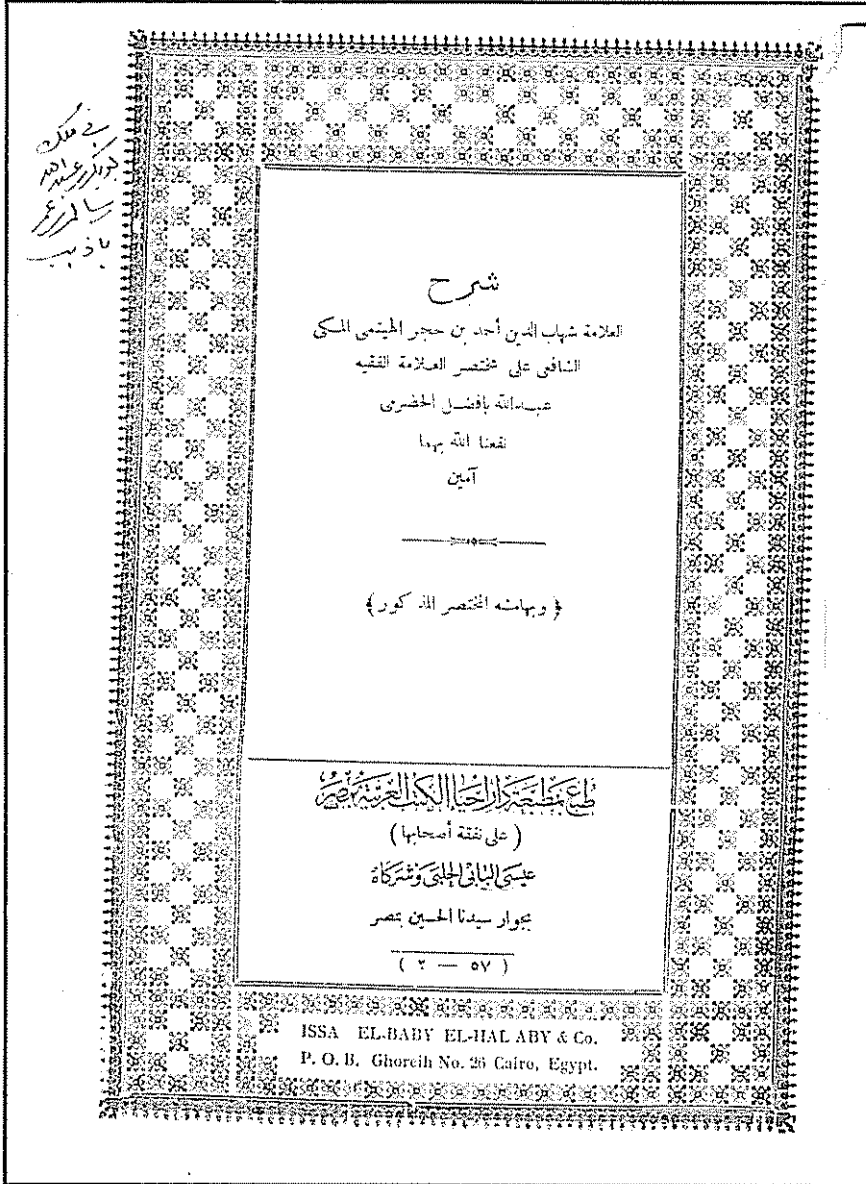 في ملك
أبوبكر عبدالله
سالم عمر
باذيب
شرح
العلامة شهاب الدين أحمد بن حجر الهيتمى المكى
الشافعى على مختصر العلامة الفقيه
عبدالله بافضل الحضرمى
نفعنا الله بهما
آمين
﴿ وبهامشه المختصر المذكور ﴾
طبع بمطبعة دار إحياء الكتب العربية بمصر
( على نفقة أصحابها )
عيسى البابى الحلبى وشركاه
بجوار سيدنا الحسين بمصر
( ٥٧ — ٢ )
ISSA EL-BABY EL-HAL ABY & Co.
P. O. B. Ghoreih No. 26 Cairo, Egypt.